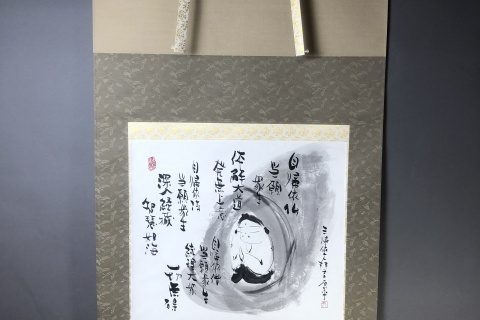 自帰依仏
当願衆生
体解大道
発無上意
自帰依法
当願衆生
深入経蔵
智慧如海
自帰依僧
当願衆生
統理大衆
一切無礙